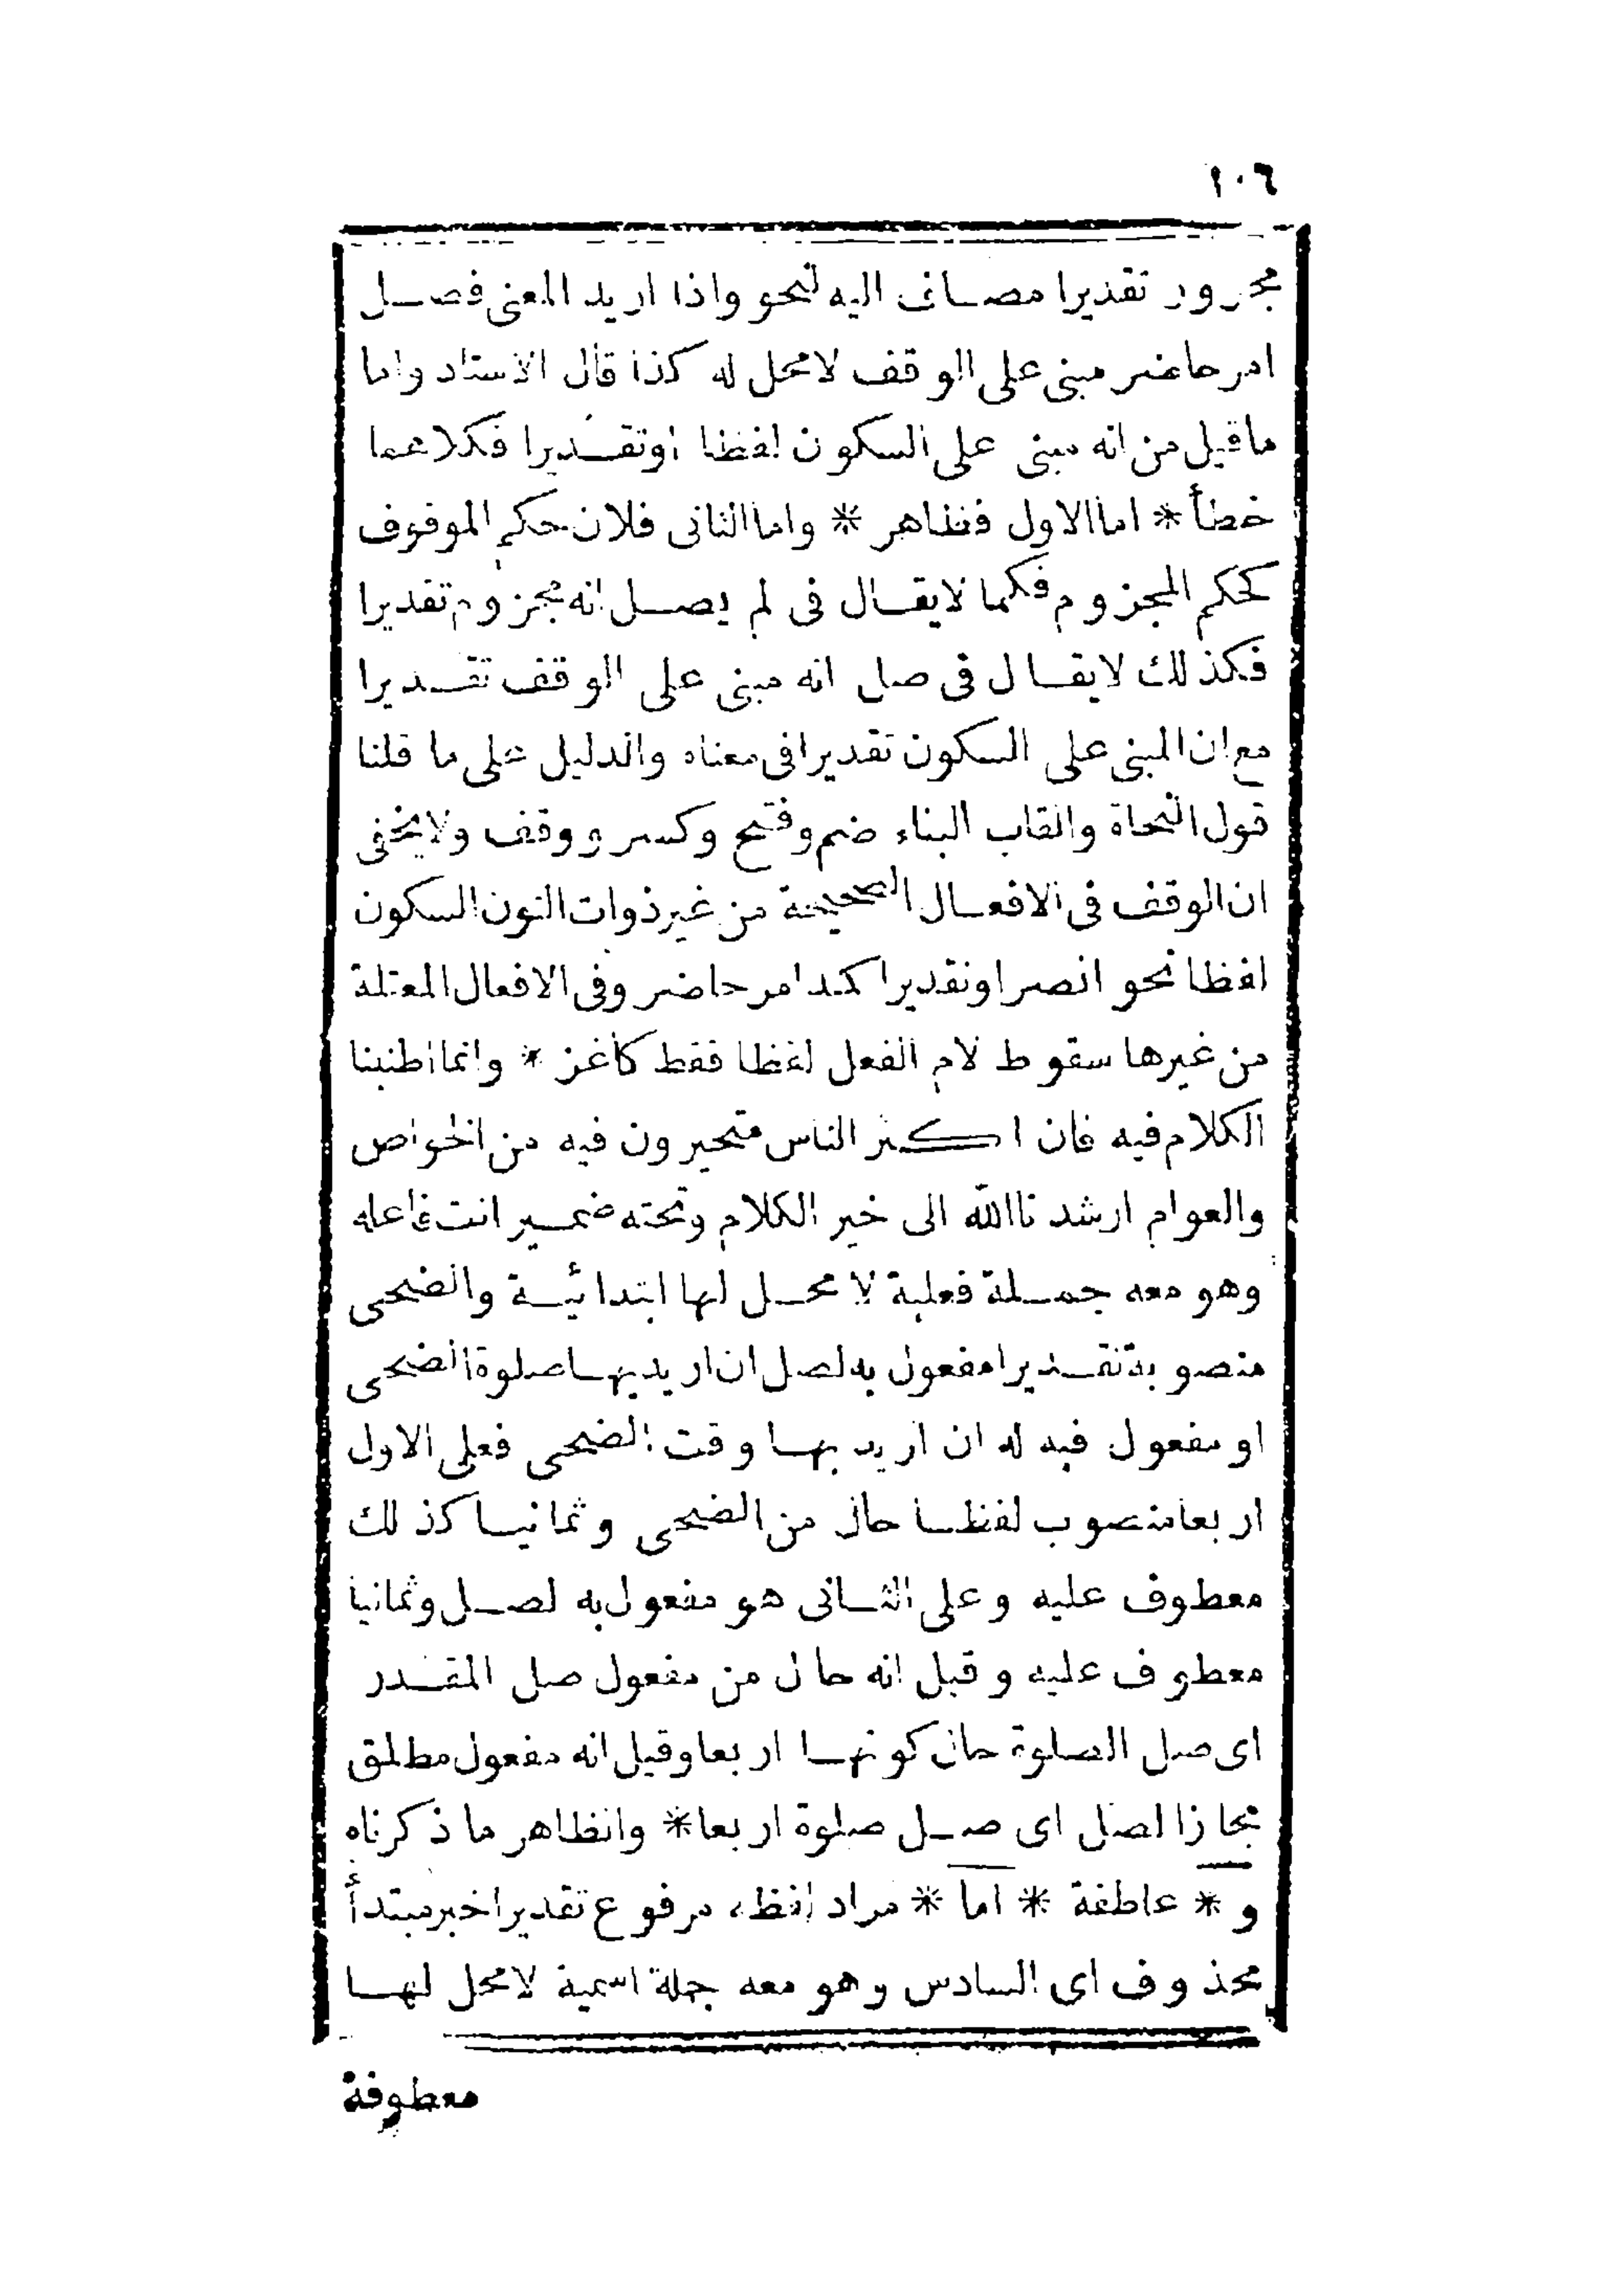 ١٠٦
مجرور تقديرا مضاف اليه لنحو واذا اريد المعنى فصل
امر حاضر مبنى على الوقف لامحل له كذا قال الاستاد واما
ماقيل من انه مبنى على السكون لفظا اوتقديرا فكلاهما
خطأ * اما الاول فظاهر * واما الثانى فلان حكم الموقوف
كحكم المجزوم فكما لايقال فى لم يصل انه مجزوم تقديرا
فكذلك لايقال فى صل انه مبنى على الوقف تقديرا
مع ان المبنى على السكون تقديرا فى معناه والدليل على ما قلنا
قول النحاة والقاب البناء ضم وفتح وكسر ووقف ولايخفى
ان الوقف فى الافعال الصحيحة من غير ذوات النون السكون
لفظا نحو انصر اوتقديرا كمد امر حاضر وفى الافعال المعتلة
من غيرها سقوط لام الفعل لفظا فقط كاغز * وانما اطنبنا
الكلام فيه فان اكثر الناس متحيرون فيه من الخواص
والعوام ارشدنا الله الى خير الكلام وتحته ضمير انت فاعله
وهو معه جملة فعلية لا محل لها ابتدائية والضحى
منصوبة تقديرا مفعول به لصل ان اريد بها صلوة الضحى
او مفعول فيه له ان اريد بها وقت الضحى فعلى الاول
اربعا منصوب لفظا حال من الضحى وثمانيا كذلك
معطوف عليه وعلى الثانى هو مفعول به لصل وثمانيا
معطوف عليه وقيل انه حال من مفعول صل المقدر
اى صل الصلوة حال كونها اربعا وقيل انه مفعول مطلق
مجازا لصل اى صل صلوة اربعا * والظاهر ما ذكرناه
و * عاطفة * اما * مراد لفظه مرفوع تقديرا خبر مبتدأ
محذوف اى السادس وهو معه جملة اسمية لامحل لها
معطوفة